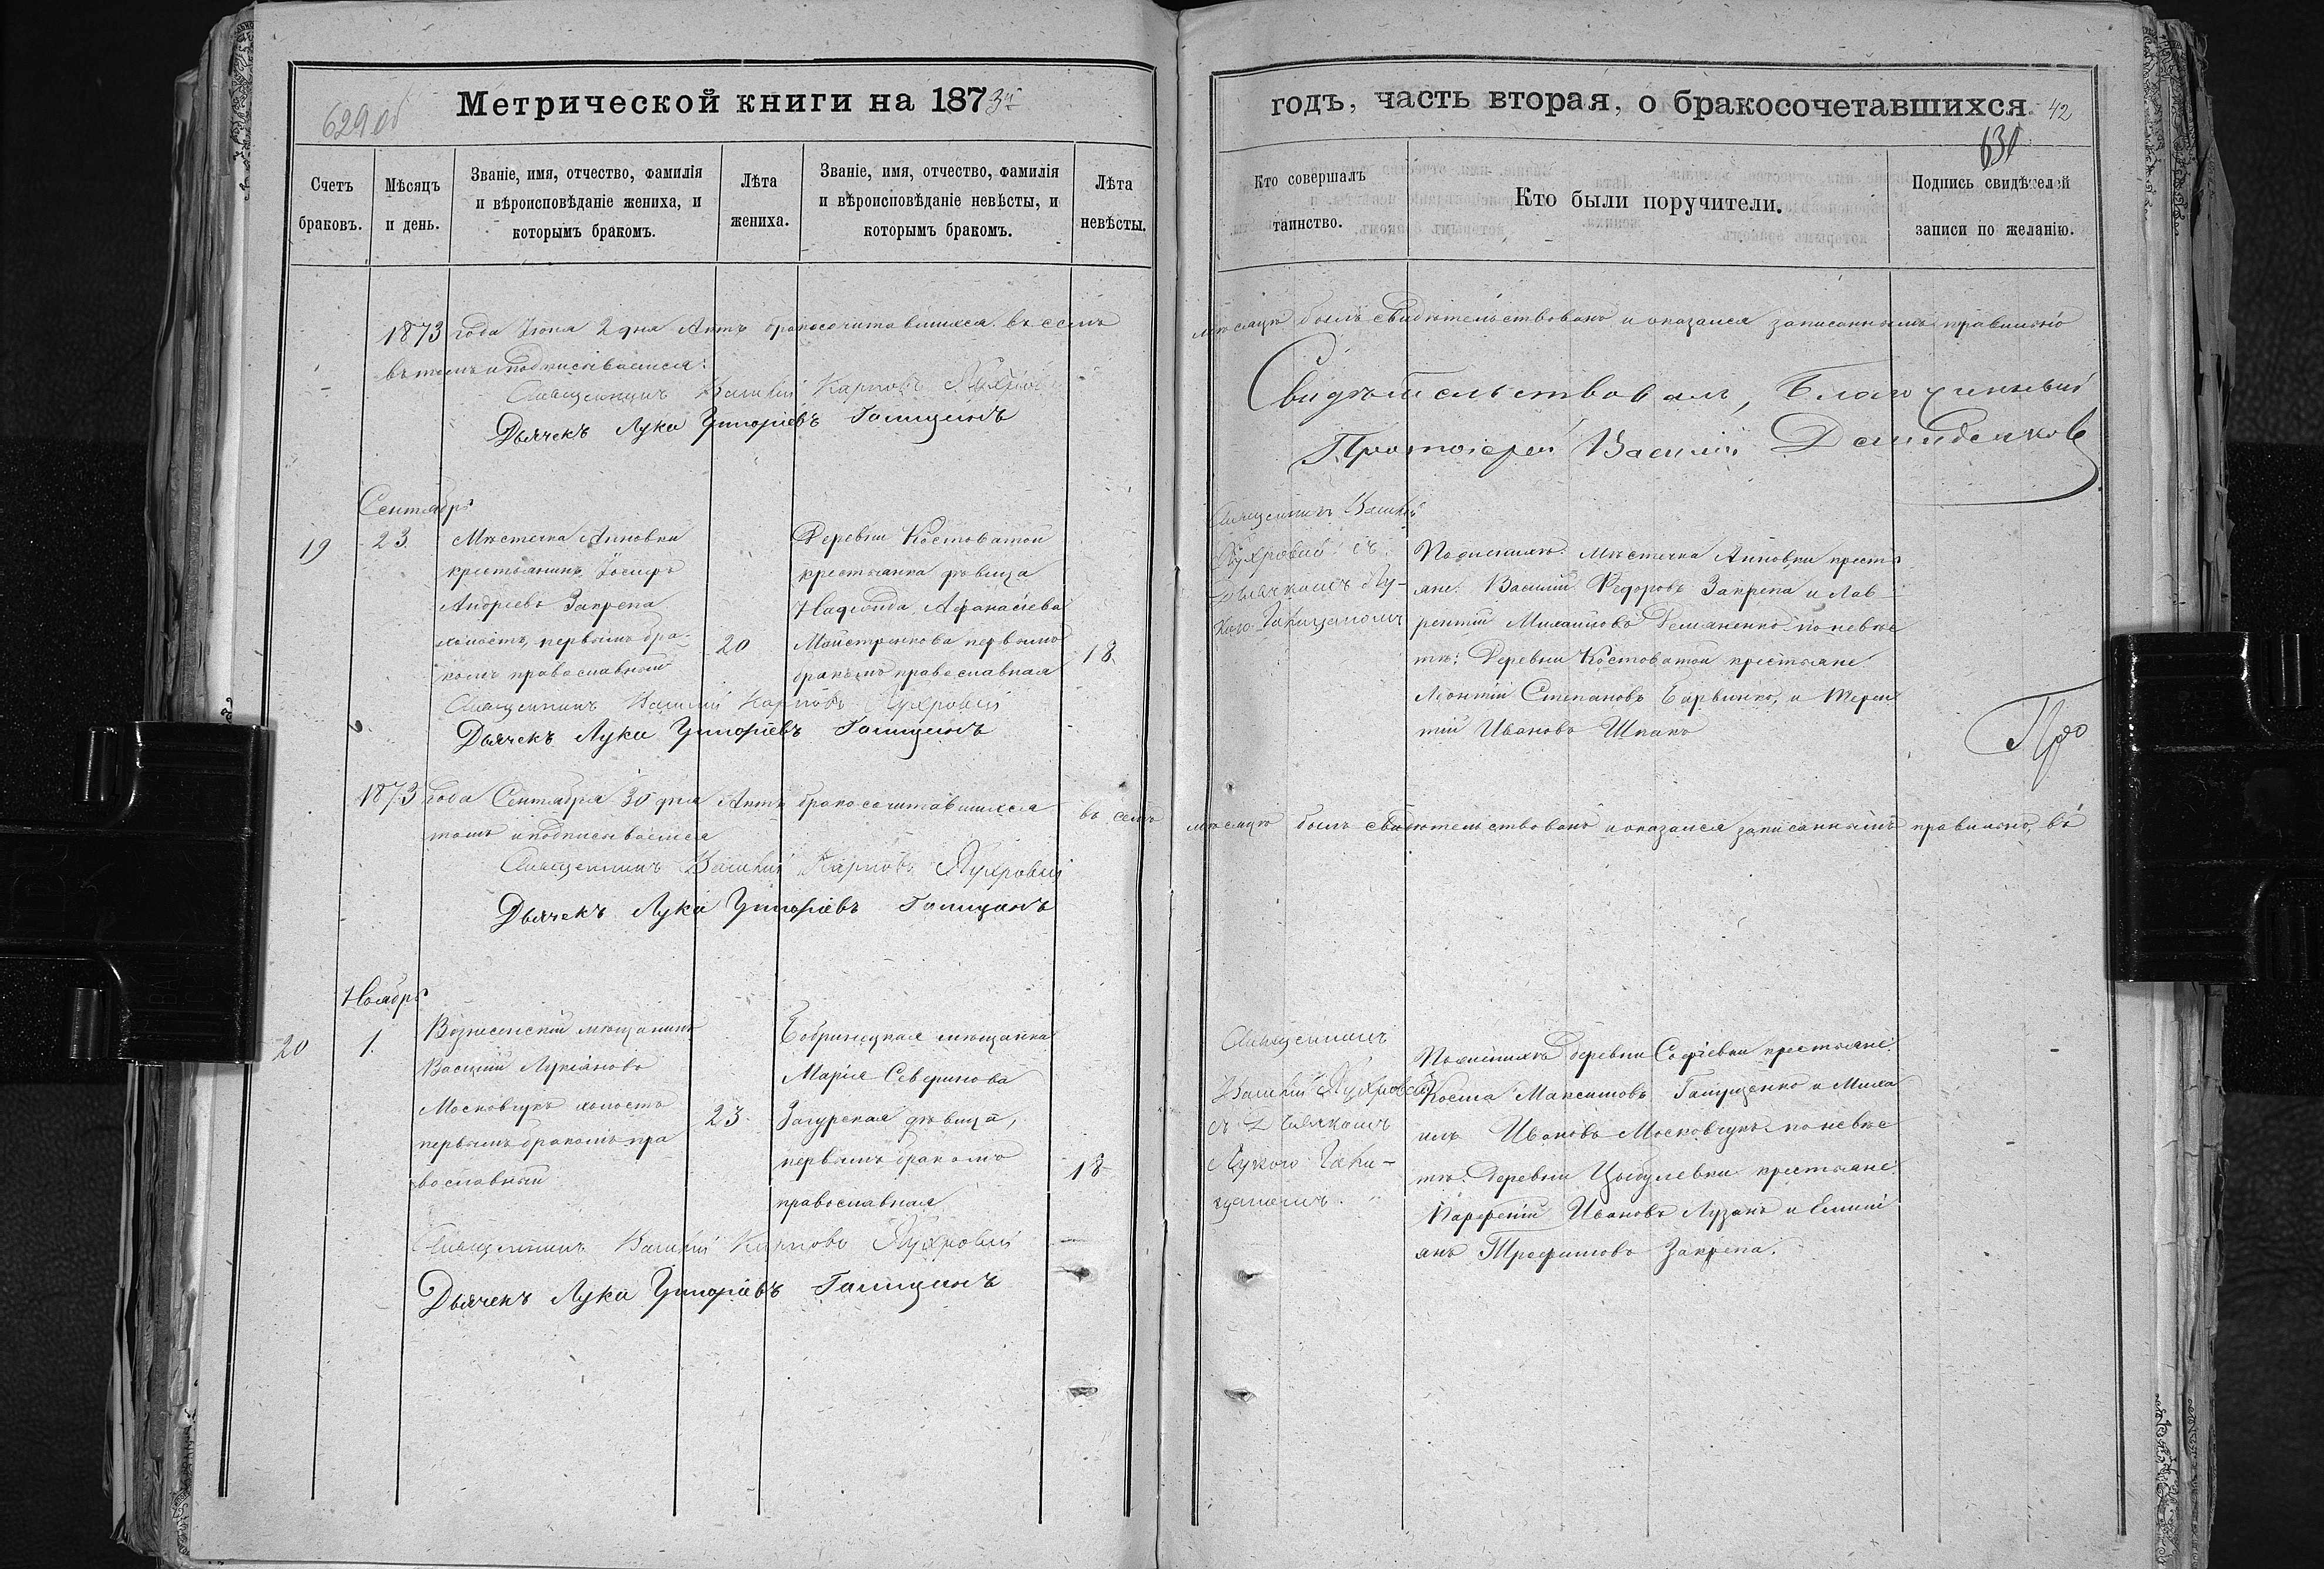 629 об
Метрической книги на 1873й
Счетъ браковъ.
Мѣсяцъ и день.
Званіе, имя, отчество, фамилія
и вѣроисповѣданіе жениха, и
которымъ бракомъ.
Лѣта жениха.
Званіе, имя, отчество, фамилія
и вѣроисповѣданіе невѣсты, и
которымъ бракомъ.
Лѣта невѣсты.
1873 года Іюня 2 дня Актъ бракосочитавшихся въ семъ
въ томъ и подписываемся:
Священникъ Василій Карповъ
Дьячекъ Лука Григоріевъ Галицанъ
Сентябрь
19
23.
Мѣстечка Анновки
крестьянинъ Іосифъ
Андреевъ Закрепа
холостъ, первымъ бра-
комъ православный
20
Деревни Костоватой
крестьянка дѣвица
Надежда Афанасіева
первымъ
бракомъ православная
18.
Священникъ Василій Карповъ
Дьячекъ Лука Григоріевъ Галицанъ
1873 года Сентября 30 дня Актъ бракосочитавшихся въ семъ
томъ и подписываемся
Священникъ Василій Карповъ
Дьячекъ Лука Григоріевъ Галицанъ
Ноябрь
20
1.
Вознесенскій мещанинъ
Василій Лукіановъ
Московчукъ холостъ
первымъ бракомъ пра
вославный
23.
Бобринецкая мещанка
Марія Северинова
Загурская дѣвица,
первымъ бракомъ
православная
18
Священникъ Василій Карповъ
Дьячекъ Лука Григоріевъ Галицанъ
годъ, часть вторая, о бракосочетавшихся.
42
630
Кто совершалъ
таинство.
Кто были поручители.
Подпись свидѣтелей
записи по желанію.
мѣсяцѣ былъ свидѣтельствованъ и оказался записаннымъ правильно
Свидѣтельствовалъ, Благочинный
Протоіерей Василій
Священникъ Василій
съ
Дьячкомъ Лу-
кою Галицаномъ
По женихѣ: Мѣстечка Анновки кресть
яне: Василій Федоровъ Закрепа и Лав-
рентій Михайловъ Демяненко по невѣс
тѣ: Деревни Костоватой крестьяне
Леонтій Степановъ и Терен
тій Ивановъ Шпакъ
Про
мѣсяцѣ былъ свидѣтельствованъ и оказался записаннымъ правильно, въ
Священникъ
Василій
съ Дьячкомъ
Лукою Гали-
цаномъ.
По женихѣ деревни Софіевки крестьяне:
Косма Максимовъ и Миха
илъ Ивановъ Московчукъ по невѣс
тѣ: Деревни Цыбулевки крестьяне:
Парфеній Ивановъ Лузанъ и Емилі
анъ Трофимовъ Закрепа.